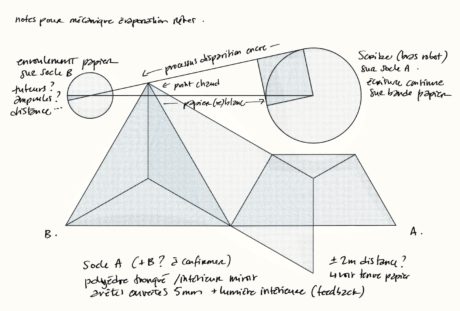 notes pour mécanique évaporation
enroulement papier
sur socle B
tuteurs ?
ampoules ?
distance ...
processus disparition encre
point chaud
papier (re)blanc
Scribe (bras robot)
sur socle A.
écriture continue
sur bande papier
B.
A.
Socle A (+B ? à confirmer)
polyèdre tronqué / intérieur miroir
arêtes ouvertes 5mm + lumière intérieure (feedback)
± 2m distance ?
voir tenue papier